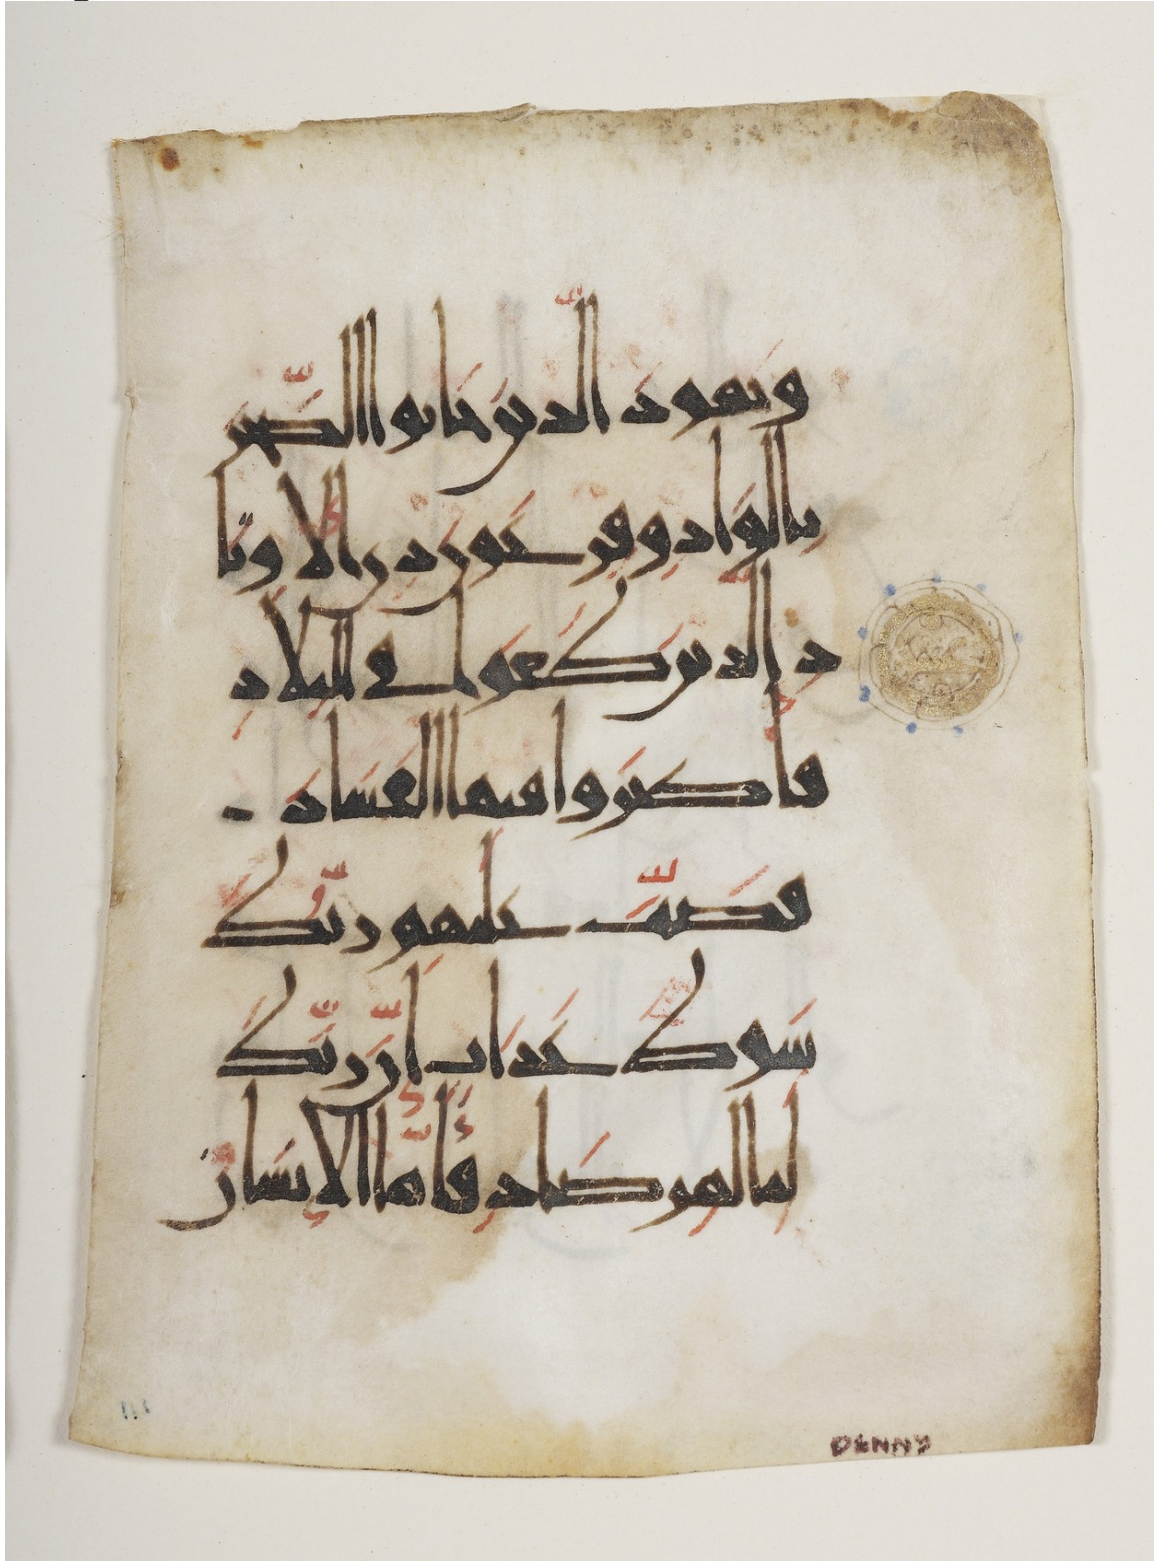 وثمود الذين جابوا الصخر
بالواد وفرعون ذي الاوتا
د الذين طغوا في البلاد
فاكثروا فيها الفساد
فصب عليهم ربك
سوط عذاب ان ربك
لبالمرصاد فاما الانسان
DENNY